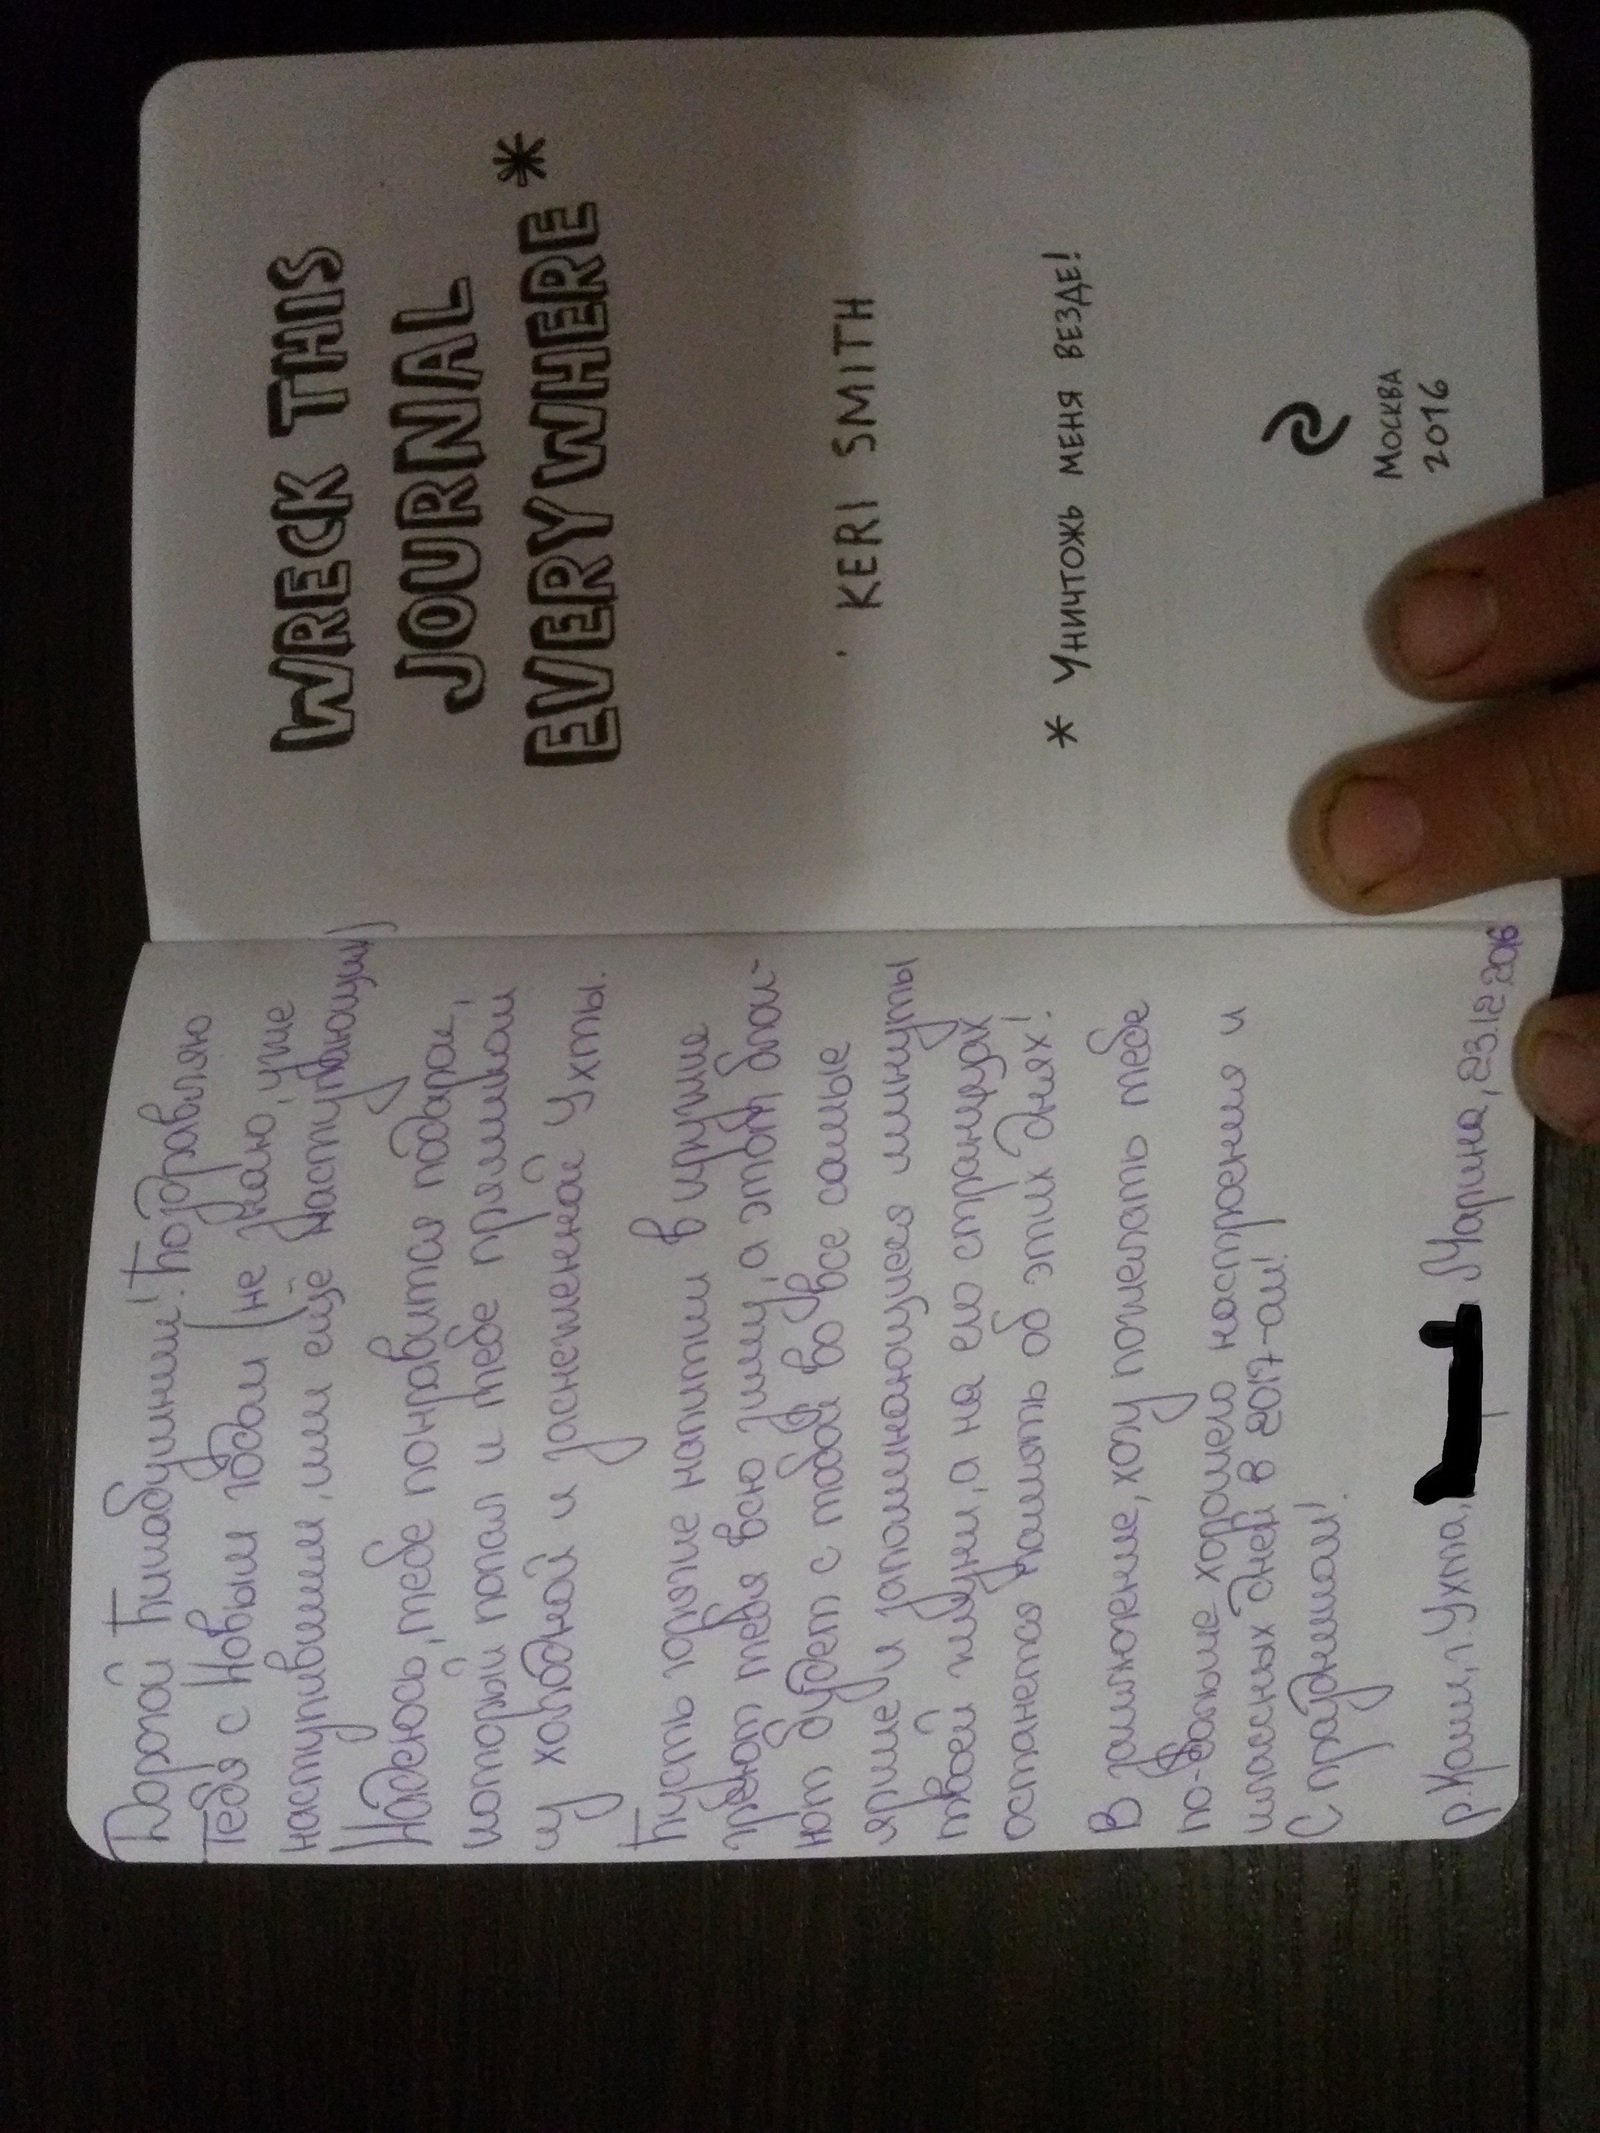 Дорогой Пикабушник! Поздравляю
тебя с Новым годом (не знаю, уже
наступившим, или ещё наступающим)
Надеюсь, тебе понравится подарок,
который попал к тебе прямиком
из холодной и заснеженной Ухты.
Пусть горячие напитки в кружке
греют тебя всю зиму, а этот блок-
нот будет с тобой во все самые
яркие и запоминающиеся минуты
твоей жизни, а на его страницах
останется память об этих днях!
В заключение, хочу пожелать тебе
по-больше хорошего настроения и
классных дней в 2017-ом!
С праздником!
р. Коми, г. Ухта, Марина, 23.12.2016
WRECK THIS
JOURNAL
EVERYWHERE *
KERI SMITH
* УНИЧТОЖЬ МЕНЯ ВЕЗДЕ!
МОСКВА
2016